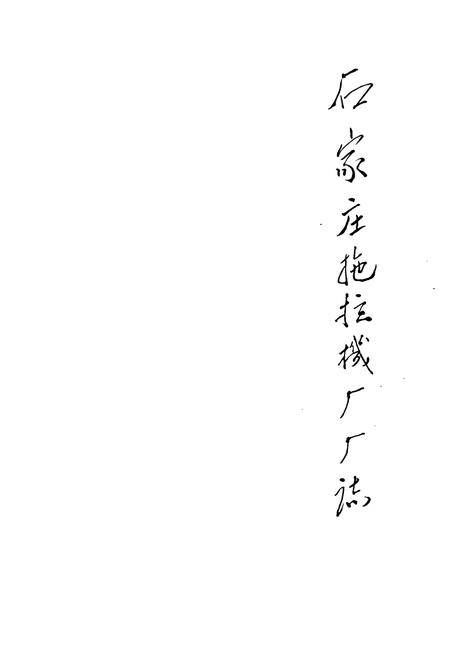 石家庄拖拉機厂厂誌